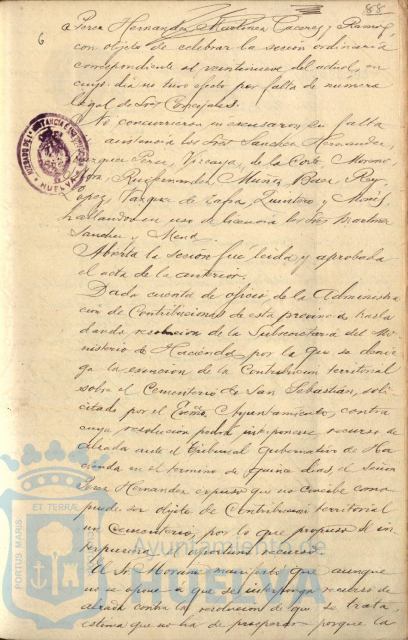 88
6
Perez Hernandez, Martinez Caceres, y Ramirez,
con objeto de celebrar la sesion ordinaria
correspondiente al veintinueve del actual, en
cuyo dia no tuvo efecto por falta de numero
legal de Sres Concejales.
No concurrieron ni excusaron su falta
asistencia los Sres Sanchez Hernandez,
Vazquez Perez, Vizcaya, de la Corte, Moreno,
Ruifernandez, Muñoz, Baez, Rey,
Lopez, Vazquez de Zafra, Quintero y
hallandose en uso de licencia los Sres Martinez
Sanchez y
Abierta la sesion fué leida y aprobada
el acta de la anterior.
Dada cuenta de oficio de la Administra
cion de Contribuciones de esta provincia trasla
dando resolucion de la Subsecretaria del Mi
nisterio de Hacienda, por la que se denie
ga la esencion de la Contribucion territorial
sobre el Cementerio de San Sebastian, soli
citada por el Excmo Ayuntamiento, contra
cuya resolucion puede interponerse recurso de
alzada ante el Tribunal gubernativo de Ha
cienda en el termino de quince dias, el Señor
Perez Hernandez expuso que no concibe como
puede ser objeto de Contribucion territorial
un Cementerio, por lo que propuso se in
terpusiera el oportuno recurso.
El Sr. Moreno manifestó que aunque
no se opone a que se interponga recurso de
alzada contra la resolucion de que se trata,
estima que no ha de prosperar porque la
HUELVA
PORTUS MARIS
ET TERRAE
Ayuntamiento de
HUELVA